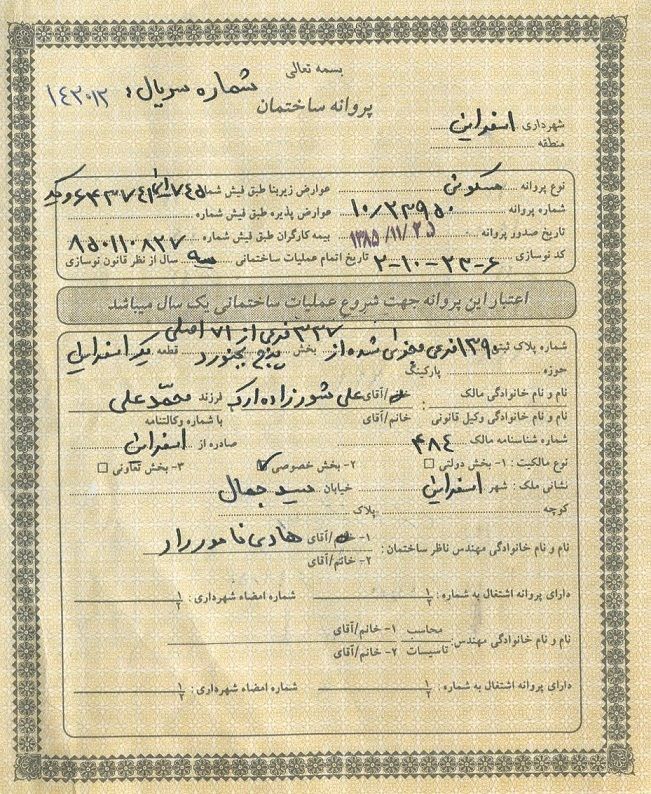 بسمه تعالی
شماره سریال: ۱۴۳۰۱۲
پروانه ساختمان
شهرداری اسفراین
منطقه
نوع پروانه مسکونی عوارض زیربنا طبق فیش شماره
شماره پروانه ۱۰/۲۳۹۵۰ عوارض پذیره طبق فیش شماره
تاریخ صدور پروانه ۱۳۸۵/۱۱/۲۵ بیمه کارگران طبق فیش شماره ۸۵۰۱۱۰۸۲۷
کد نوسازی ۶-۲۳-۱۰-۲ تاریخ اتمام عملیات ساختمانی سه سال از نظر قانون نوسازی
اعتبار این پروانه جهت شروع عملیات ساختمانی یک سال میباشد
شماره پلاک ثبتی ۱۳۹۰ فرعی مجزی شده از ۳۳۷ فرعی از ۷۱ اصلی بخش پنج بجنورد قطعه یک اسفراین
حوزه پارکینگ
نام و نام خانوادگی مالک: خانم/آقای علی شورزاده ارکی فرزند محمدعلی
نام و نام خانوادگی وکیل قانونی: خانم/آقای با شماره وکالتنامه
شماره شناسنامه مالک ۴۸۴ صادره از اسفراین
نوع مالکیت: ۱- بخش دولتی ☐ ۲- بخش خصوصی ☑ ۳- بخش تعاونی ☐
نشانی ملک: شهر اسفراین خیابان سید جمال
کوچه پلاک
نام و نام خانوادگی مهندس ناظر ساختمان: ۱- خانم/آقای هادی نامور راد
۲- خانم/آقای
دارای پروانه اشتغال به شماره: ۱ ۲ شماره امضاء شهرداری: ۱ ۲
نام و نام خانوادگی مهندس: محاسب ۱- خانم/آقای
تاسیسات ۲- خانم/آقای
دارای پروانه اشتغال به شماره: ۱ ۲ شماره امضاء شهرداری: ۱ ۲